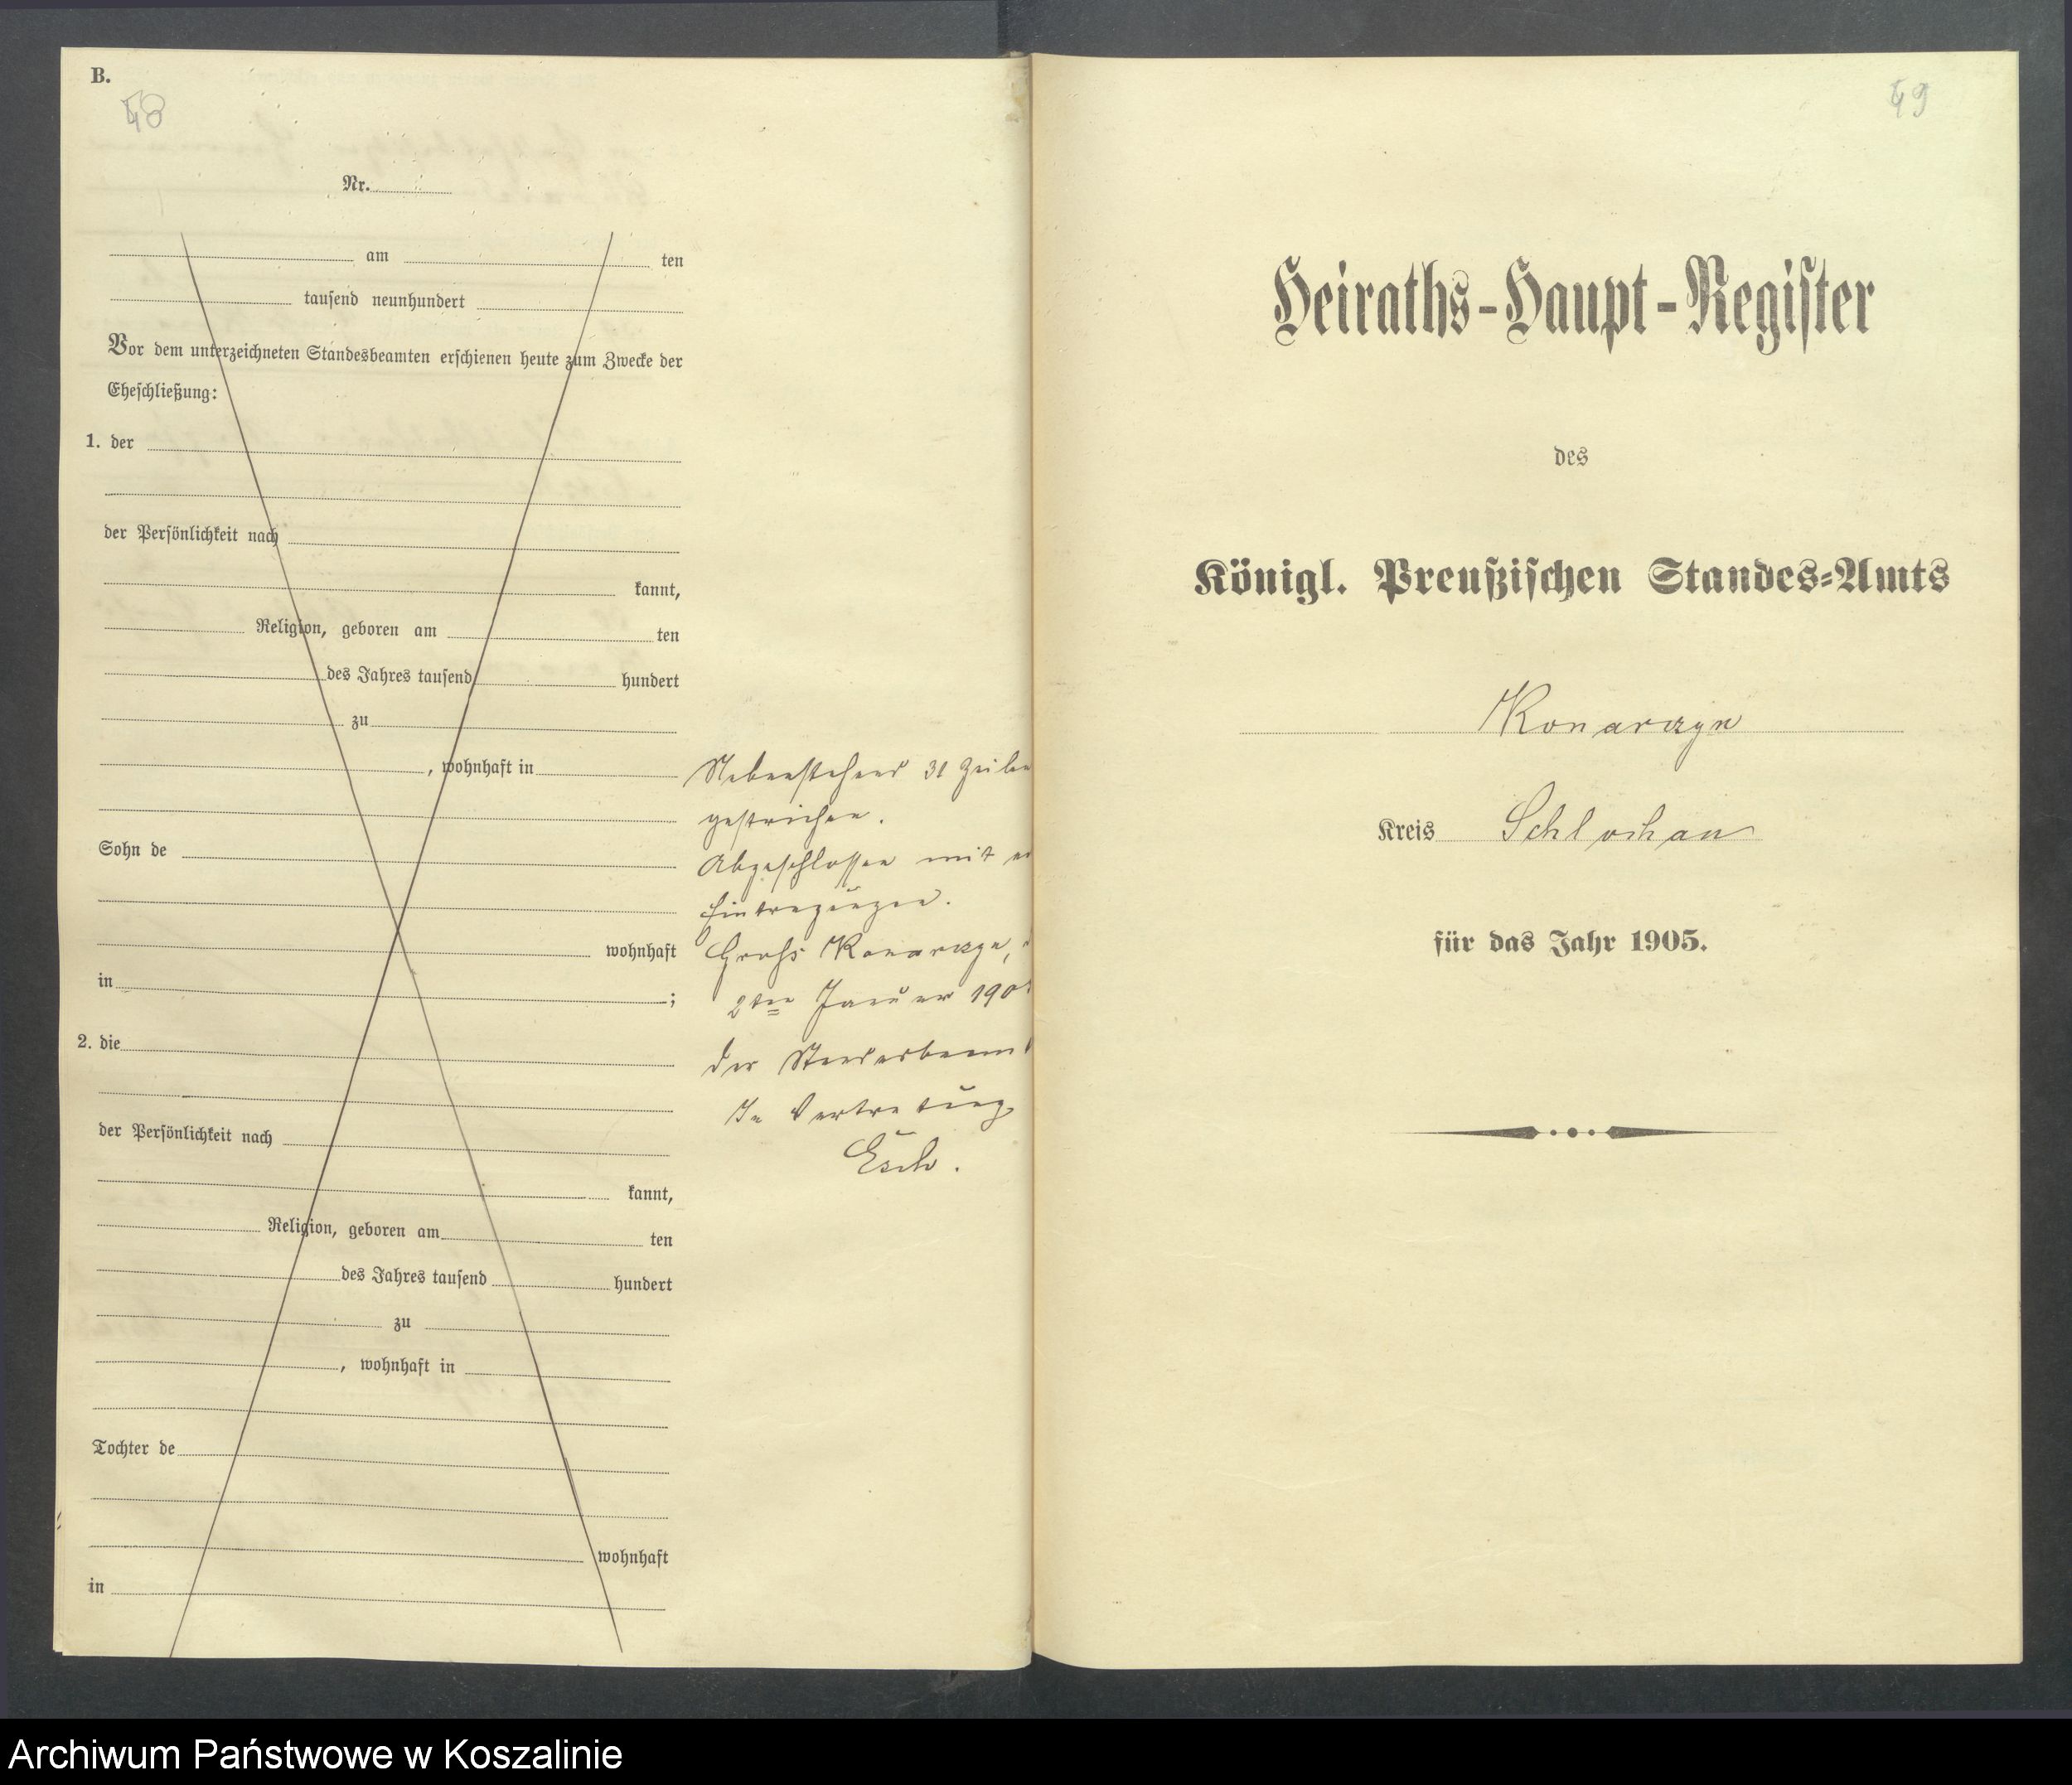 B.
48
Nr.
am ten
tausend neunhundert
Vor dem unterzeichneten Standesbeamten erschienen heute zum Zwecke der
Eheschließung:
1. der
der Persönlichkeit nach
kannt,
Religion, geboren am ten
des Jahres tausend hundert
zu
, wohnhaft in
Sohn de
wohnhaft
in ;
2. die
der Persönlichkeit nach
kannt,
Religion, geboren am ten
des Jahres tausend hundert
zu
, wohnhaft in
Tochter de
wohnhaft
in
Nebenstehend 31 Zeilen
gestrichen.
Abgeschlossen mit
Eintragungen.
Groß Konarzyn,
2ten Januar 190
Der Standesbeamt
In Vertretung
Esch.
49
Heiraths-Haupt-Register
des
Königl. Preußischen Standes-Amts
Konarzyn
Kreis Schlochau
für das Jahr 1905.
Archiwum Państwowe w Koszalinie